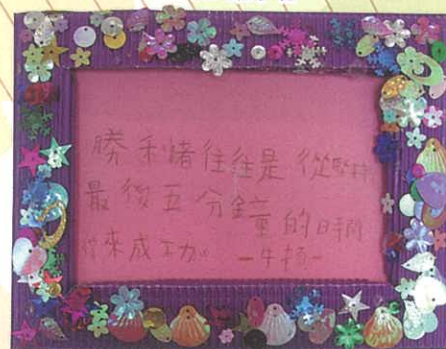 勝利者往往是從堅持
最後五分鐘的時間
得來成功。-牛頓-